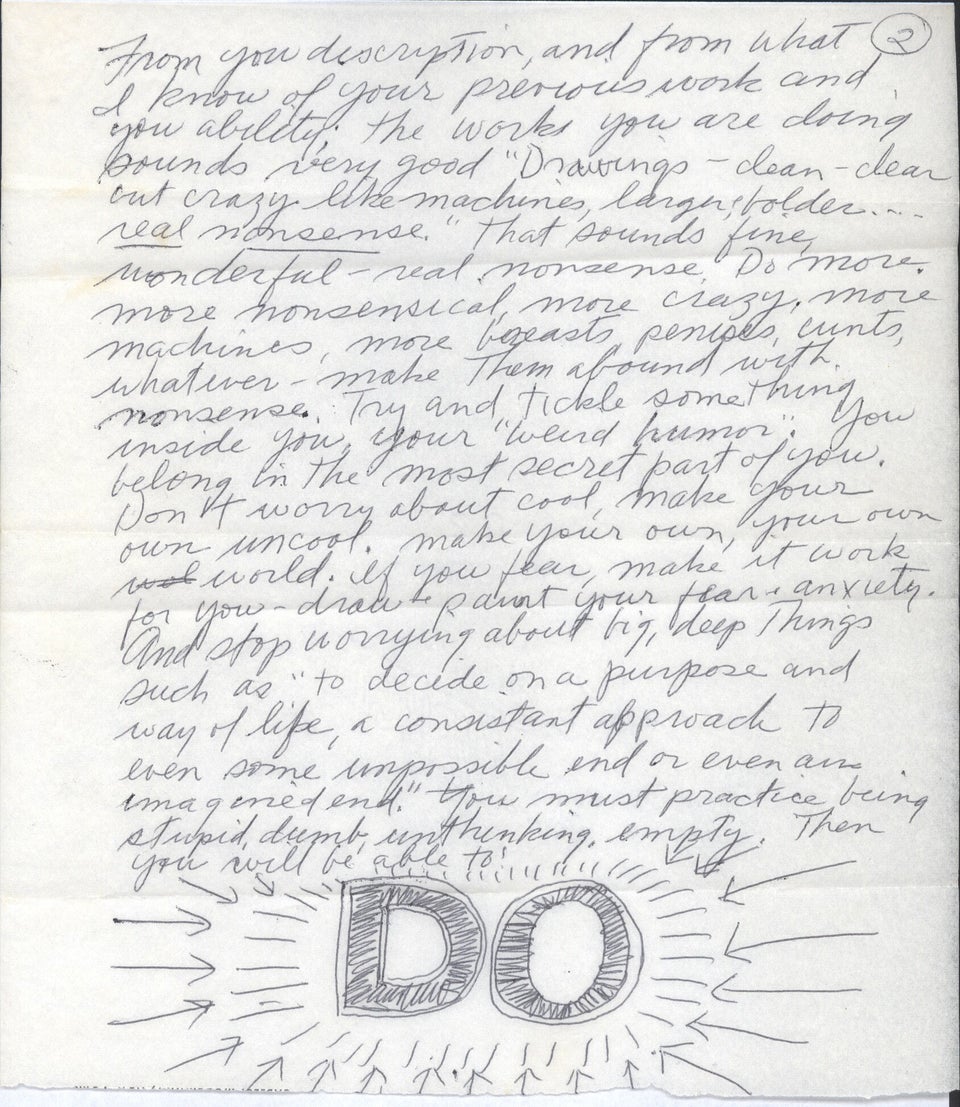 2
From you description, and from what
I know of your previous work and
you ability; the works you are doing
sounds very good "Drawings – clean – clear
but crazy like machines, larger, bolder....
real nonsense." That sounds fine,
wonderful – real nonsense. Do more.
more nonsensical, more crazy, more
machines, more breasts, penises, cunts,
whatever – make them abound with
nonsense. Try and tickle something
inside you, your "weird humor". You
belong in the most secret part of you.
Don't worry about cool, make your
own uncool. make your own, your own
world. If you fear, make it work
for you – draw + paint your fear + anxiety.
And stop worrying about big, deep things
such as "to decide on a purpose and
way of life, a consistant approach to
even some impossible end or even an
imagined end." You must practice being
stupid, dumb, unthinking, empty. Then
you will be able to!
DO